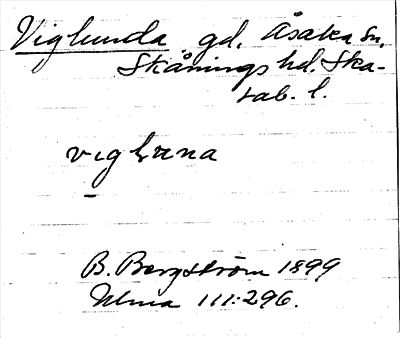 Viglunda gd. Åsaka sn,
Skånings hd. Ska-
rab. l.
viglrna
B. Bergström 1899
Ulma 111:296.